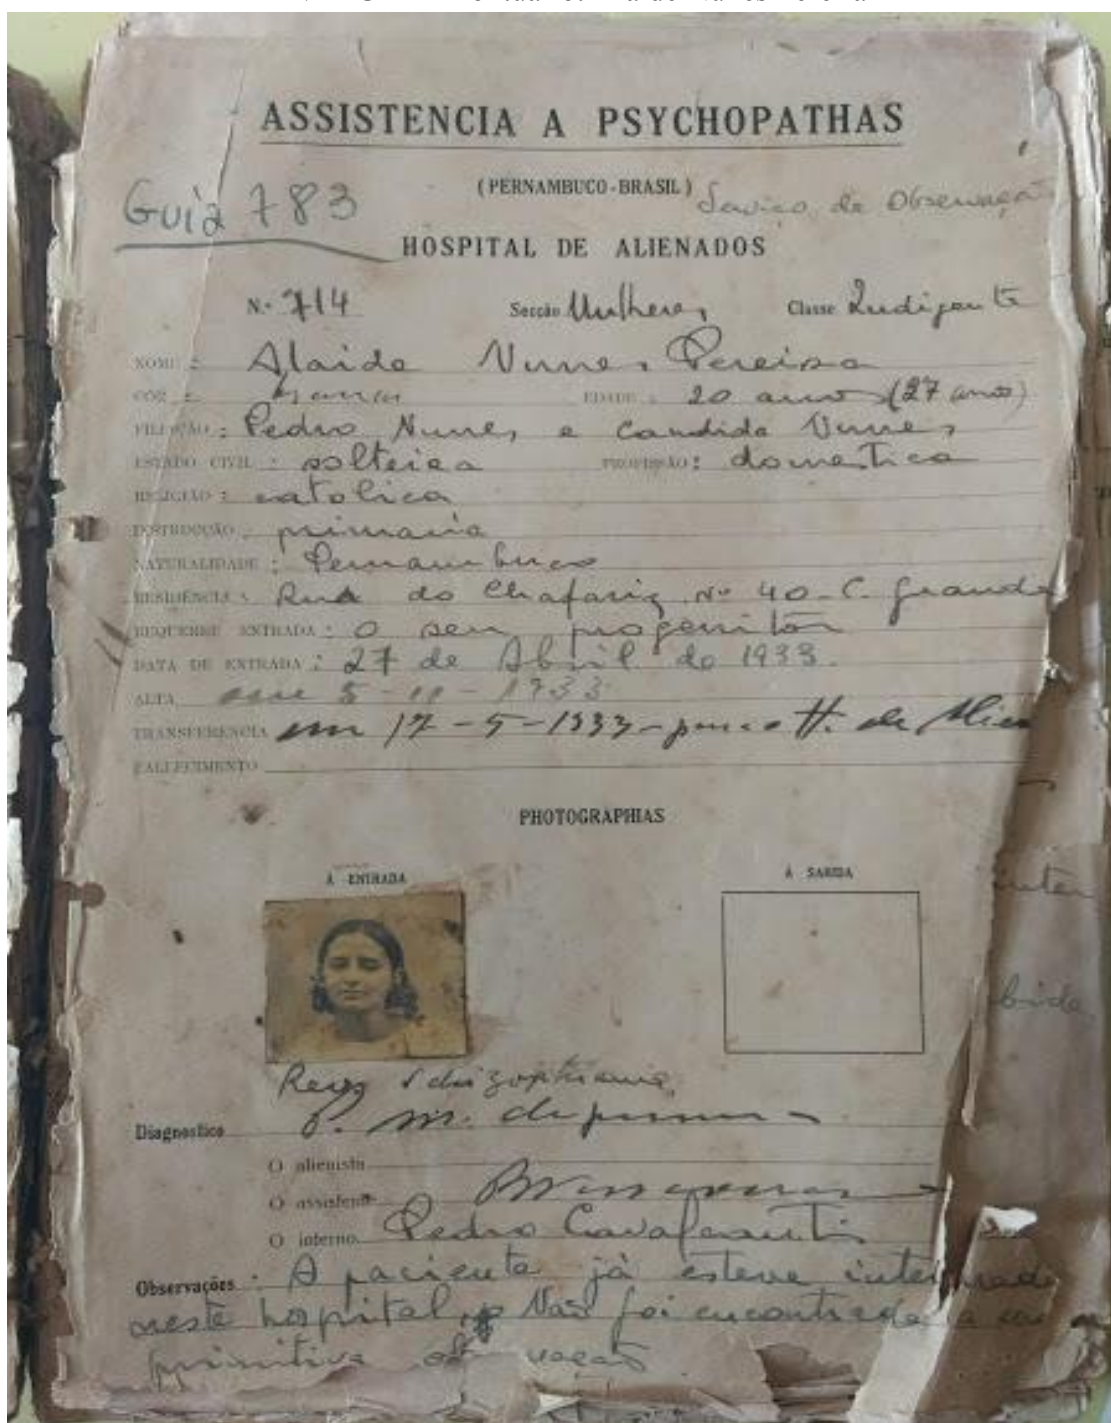 ASSISTENCIA A PSYCHOPATHAS
(PERNAMBUCO-BRASIL)
Guia 783 Serviço de Observação
HOSPITAL DE ALIENADOS
N.º 714 Secção Mulheres Classe Indigente
NOME : Alaide Nunes Pereira
CÔR : branca EDADE : 20 annos (27 anos)
FILIAÇÃO : Pedro Nunes e Candida Nunes
ESTADO CIVIL : solteira PROFISSÃO : domestica
RELIGIÃO : catolica
INSTRUCÇÃO : primaria
NATURALIDADE : Pernambuco
RESIDENCIA : Rua do Chafariz Nº 40 - C. Grande
REQUEREU ENTRADA : O seu progenitôr
DATA DE ENTRADA : 27 de Abril de 1933.
ALTA em 5-11-1933
TRANSFERENCIA em 17-5-1933 - para o H. de
FALLECIMENTO
PHOTOGRAPHIAS
Á ENTRADA Á SAHIDA
inter
Diagnostico P. M. depressiva
O alienista
O assistente
O interno Pedro Cavalcanti
Observações : A paciente já esteve internada
neste hospital. Não foi encontrada a
primitiva observação